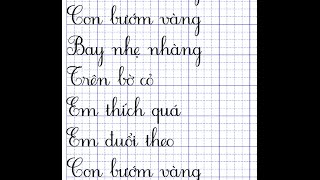 Con bướm vàng
Bay nhẹ nhàng
Trên bờ cỏ
Em thích quá
Em đuổi theo
Con bướm vàng